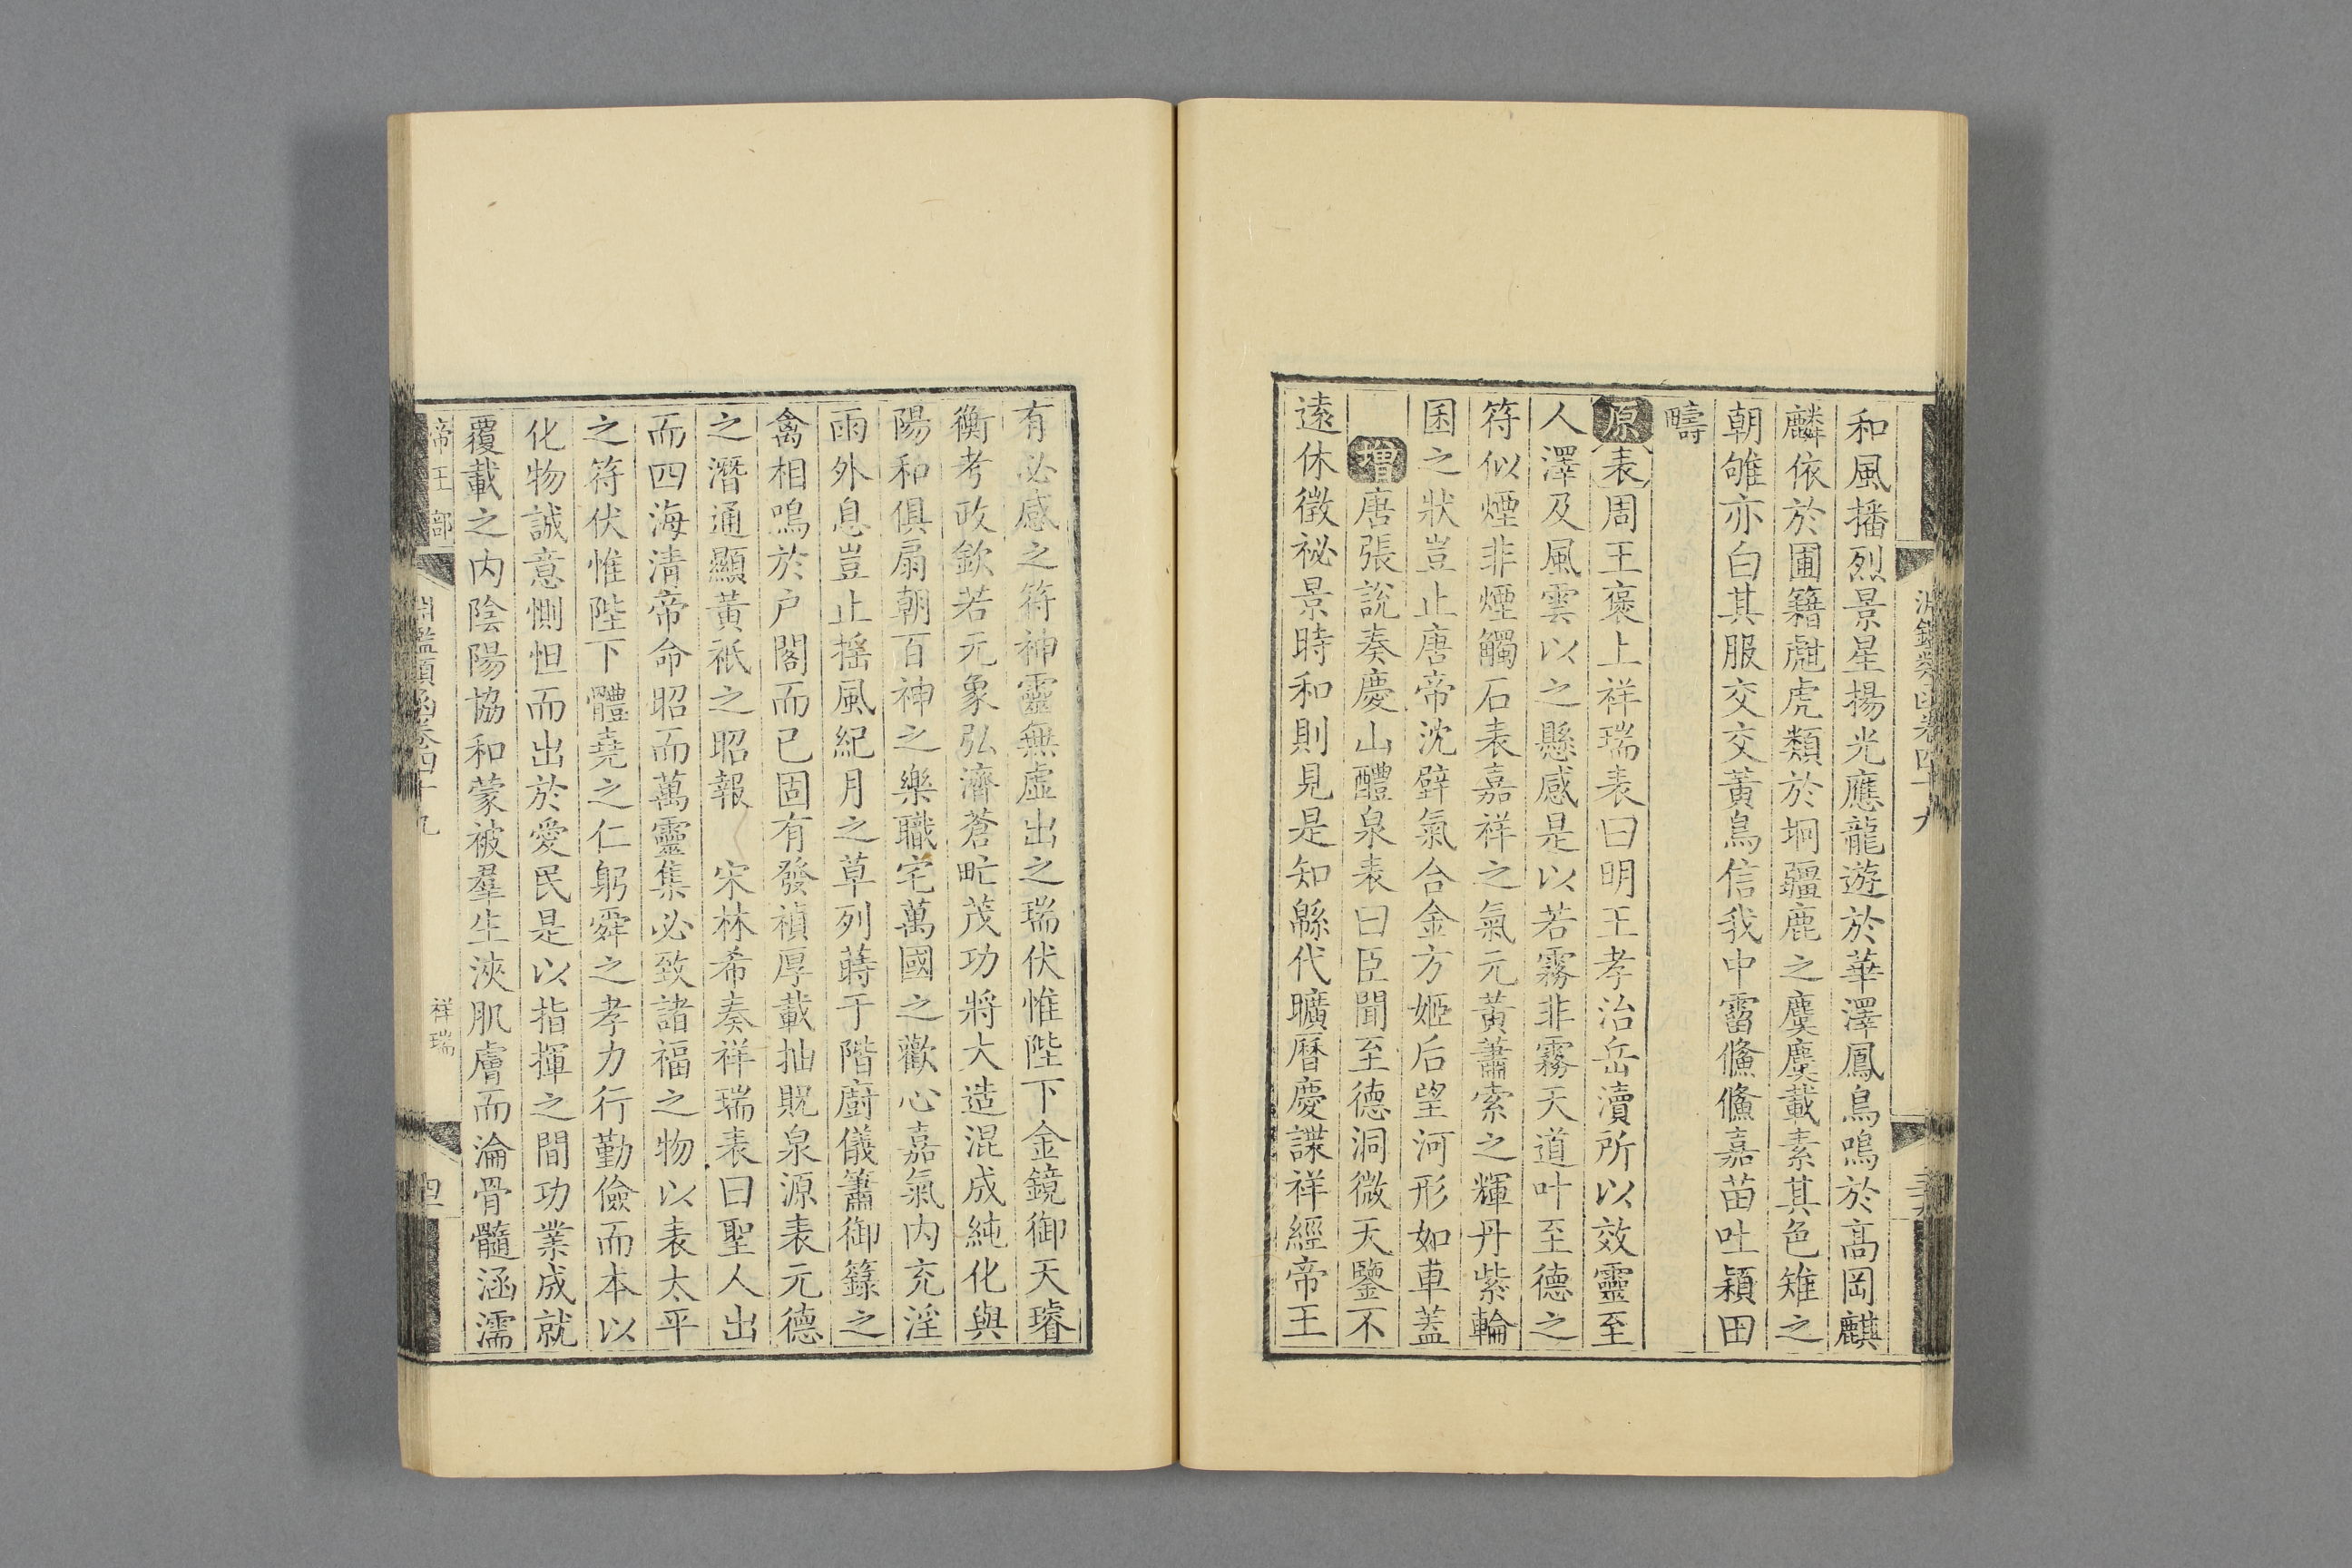 和風播烈景星揚光應龍遊於華澤鳳鳥鳴於高岡麒
麟依於圃籍甝虎類於坰疆鹿之麌麌載素其色雉之
朝雊亦白其服交交黃鳥信我中霤儵儵嘉苗吐穎田
疇
原表周王褒上祥瑞表曰明王孝治岳瀆所以效靈至
人澤及風雲以之懸感是以若霧非霧天道叶至德之
符似煙非煙觸石表嘉祥之氣元黃蕭索之輝丹紫輪
囷之狀豈止唐帝沈璧氣合金方姬后望河形如車蓋
增唐張說奏慶山醴泉表曰臣聞至德洞微天鑒不
遠休徵祕景時和則見是知緜代曠曆慶諜祥經帝王
有必感之符神靈無虛出之瑞伏惟陛下金鏡御天璿
衡考政欽若元象弘濟蒼甿茂功將大造混成純化與
陽和俱扇朝百神之樂職宅萬國之歡心嘉氣內充淫
雨外息豈止搖風紀月之草列蒔于階廚儀簫御籙之
禽相鳴於戶閣而已固有發禎厚載抽貺泉源表元德
之潛通顯黃祇之昭報 宋林希奏祥瑞表曰聖人出
而四海清帝命昭而萬靈集必致諸福之物以表太平
之符伏惟陛下體堯之仁躬舜之孝力行勤儉而本以
化物誠意惻怛而出於愛民是以指揮之間功業成就
覆載之內陰陽協和蒙被羣生浹肌膚而淪骨髓涵濡
帝王部 淵鑑類函卷四十九 祥瑞